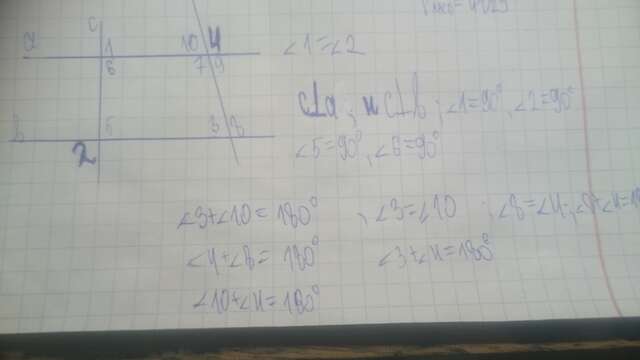 a c 1 10 4
6 7 9
b 5 3 8
2
∠1=∠2
c⊥a, и c⊥b, ∠1=90°, ∠2=90°
∠5=90°, ∠6=90°
∠3+∠10=180°, ∠3=∠10, ∠8=∠4,
∠4+∠8=180° ∠3+∠4=180°
∠10+∠4=180°